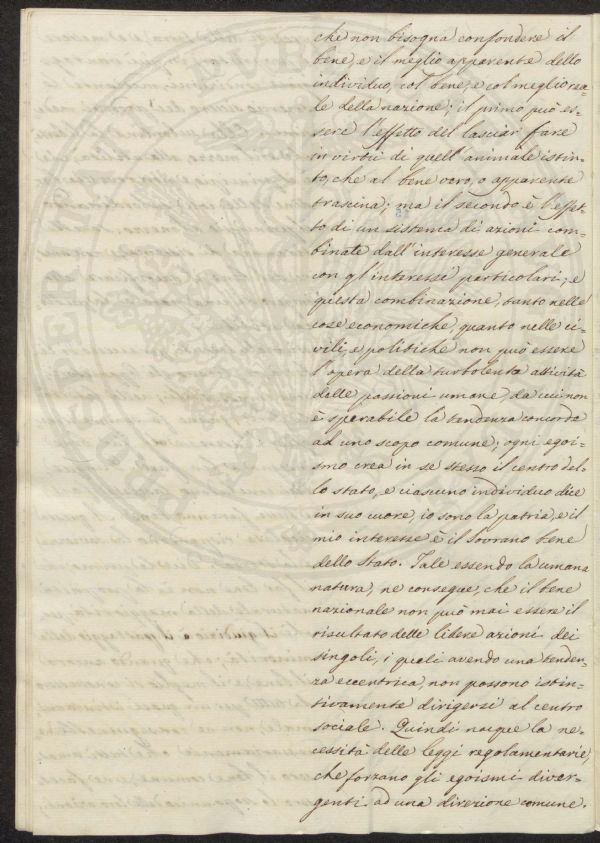 che non bisogna confondere il
bene, e il meglio apparente dello
individuo, col bene, e col meglio rea-
le della nazione; il primo può es-
sere l'effetto del lasciar fare
in virtù di quell'animale istin-
to, che al bene vero, o apparente
trascina; ma il secondo è l'effet-
to di un sistema di azioni com-
binate dall'interesse generale
con gl'interessi particolari; e
questa combinazione, tanto nelle
cose economiche, quanto nelle ci-
vili, e politiche non può essere
l'opera della turbolenta attività
delle passioni umane, da cui non
è sperabile la tendenza concorda
ad uno scopo comune; ogni egoi-
smo crea in se stesso il centro del-
lo stato, e ciascuno individuo dice
in suo cuore, io sono la patria, e il
mio interesse è il sovrano bene
dello Stato. Tale essendo la umana
natura, ne consegue, che il bene
nazionale non può mai essere il
risultato delle libere azioni dei
singoli, i quali avendo una tenden-
za eccentrica, non possono istin-
tivamente dirigersi al centro
sociale. Quindi nacque la ne-
cessità delle leggi regolamentarie,
che forzano gli egoismi diver-
genti ad una direzione comune.